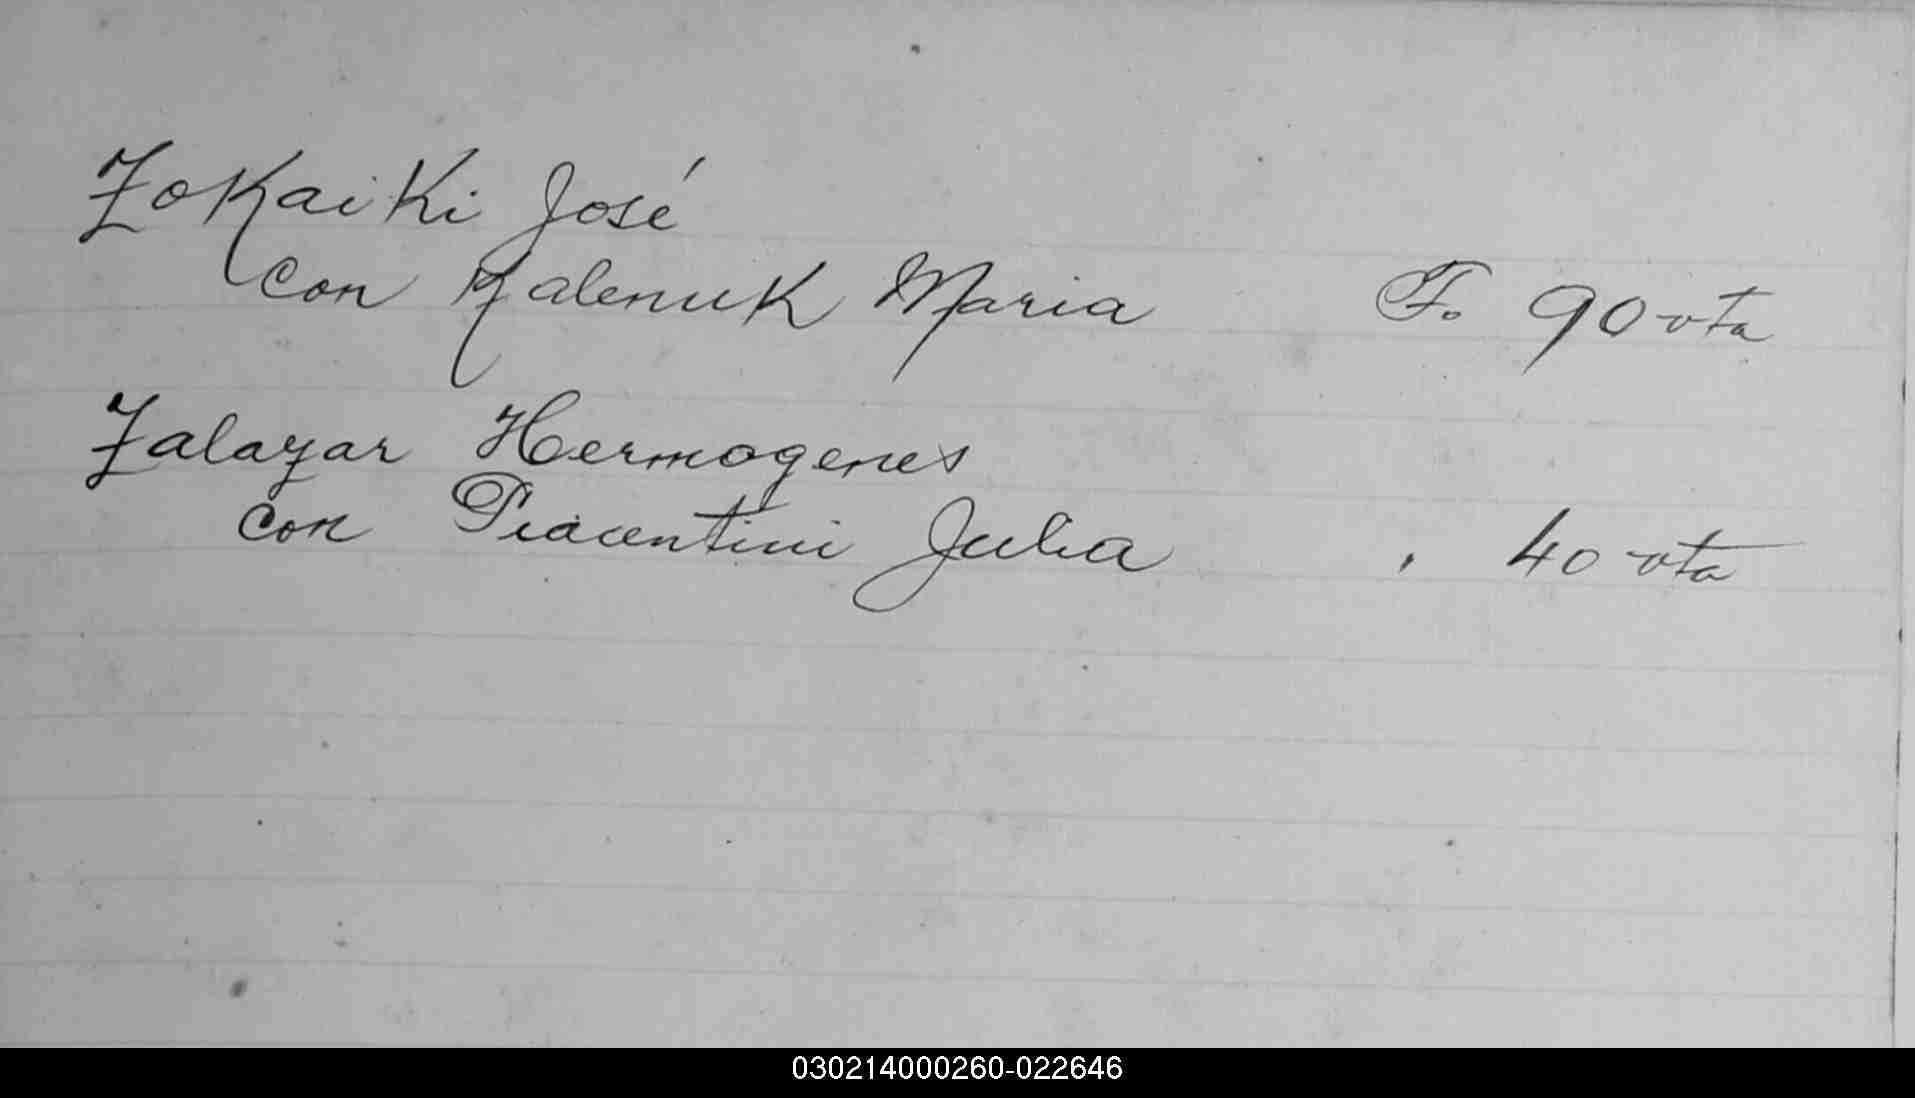 Zokaiki José
con Kalenuk Maria F. 90 vta
Zalazar Hermogenes
con Piacentini Julia , 40 vta
030214000260-022646